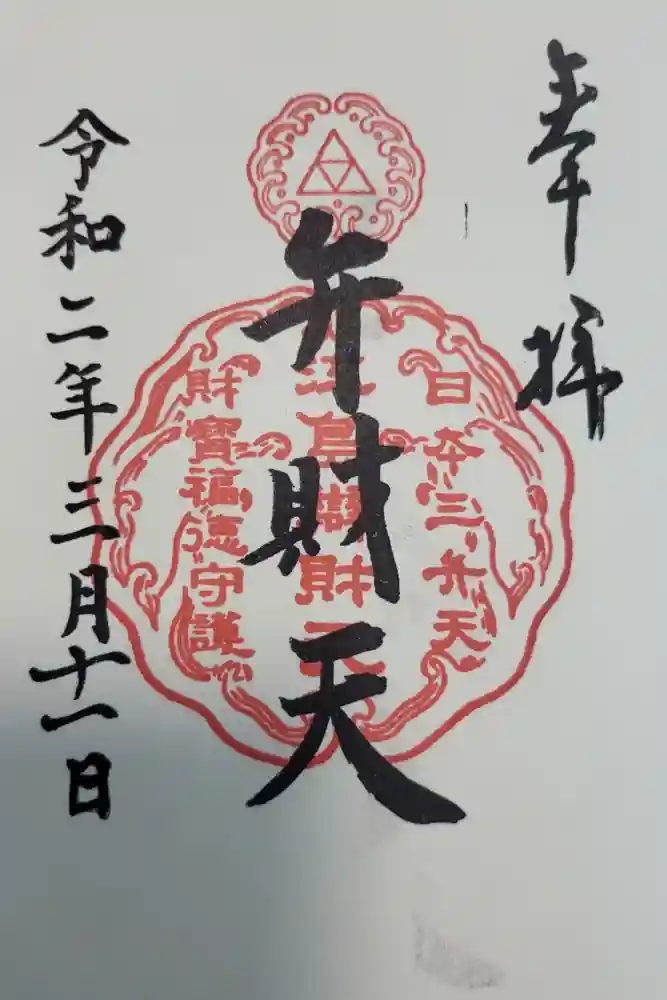 奉拝
日本三弁天
江島辨財天
弁財天
財寶福徳守護
令和二年三月十一日